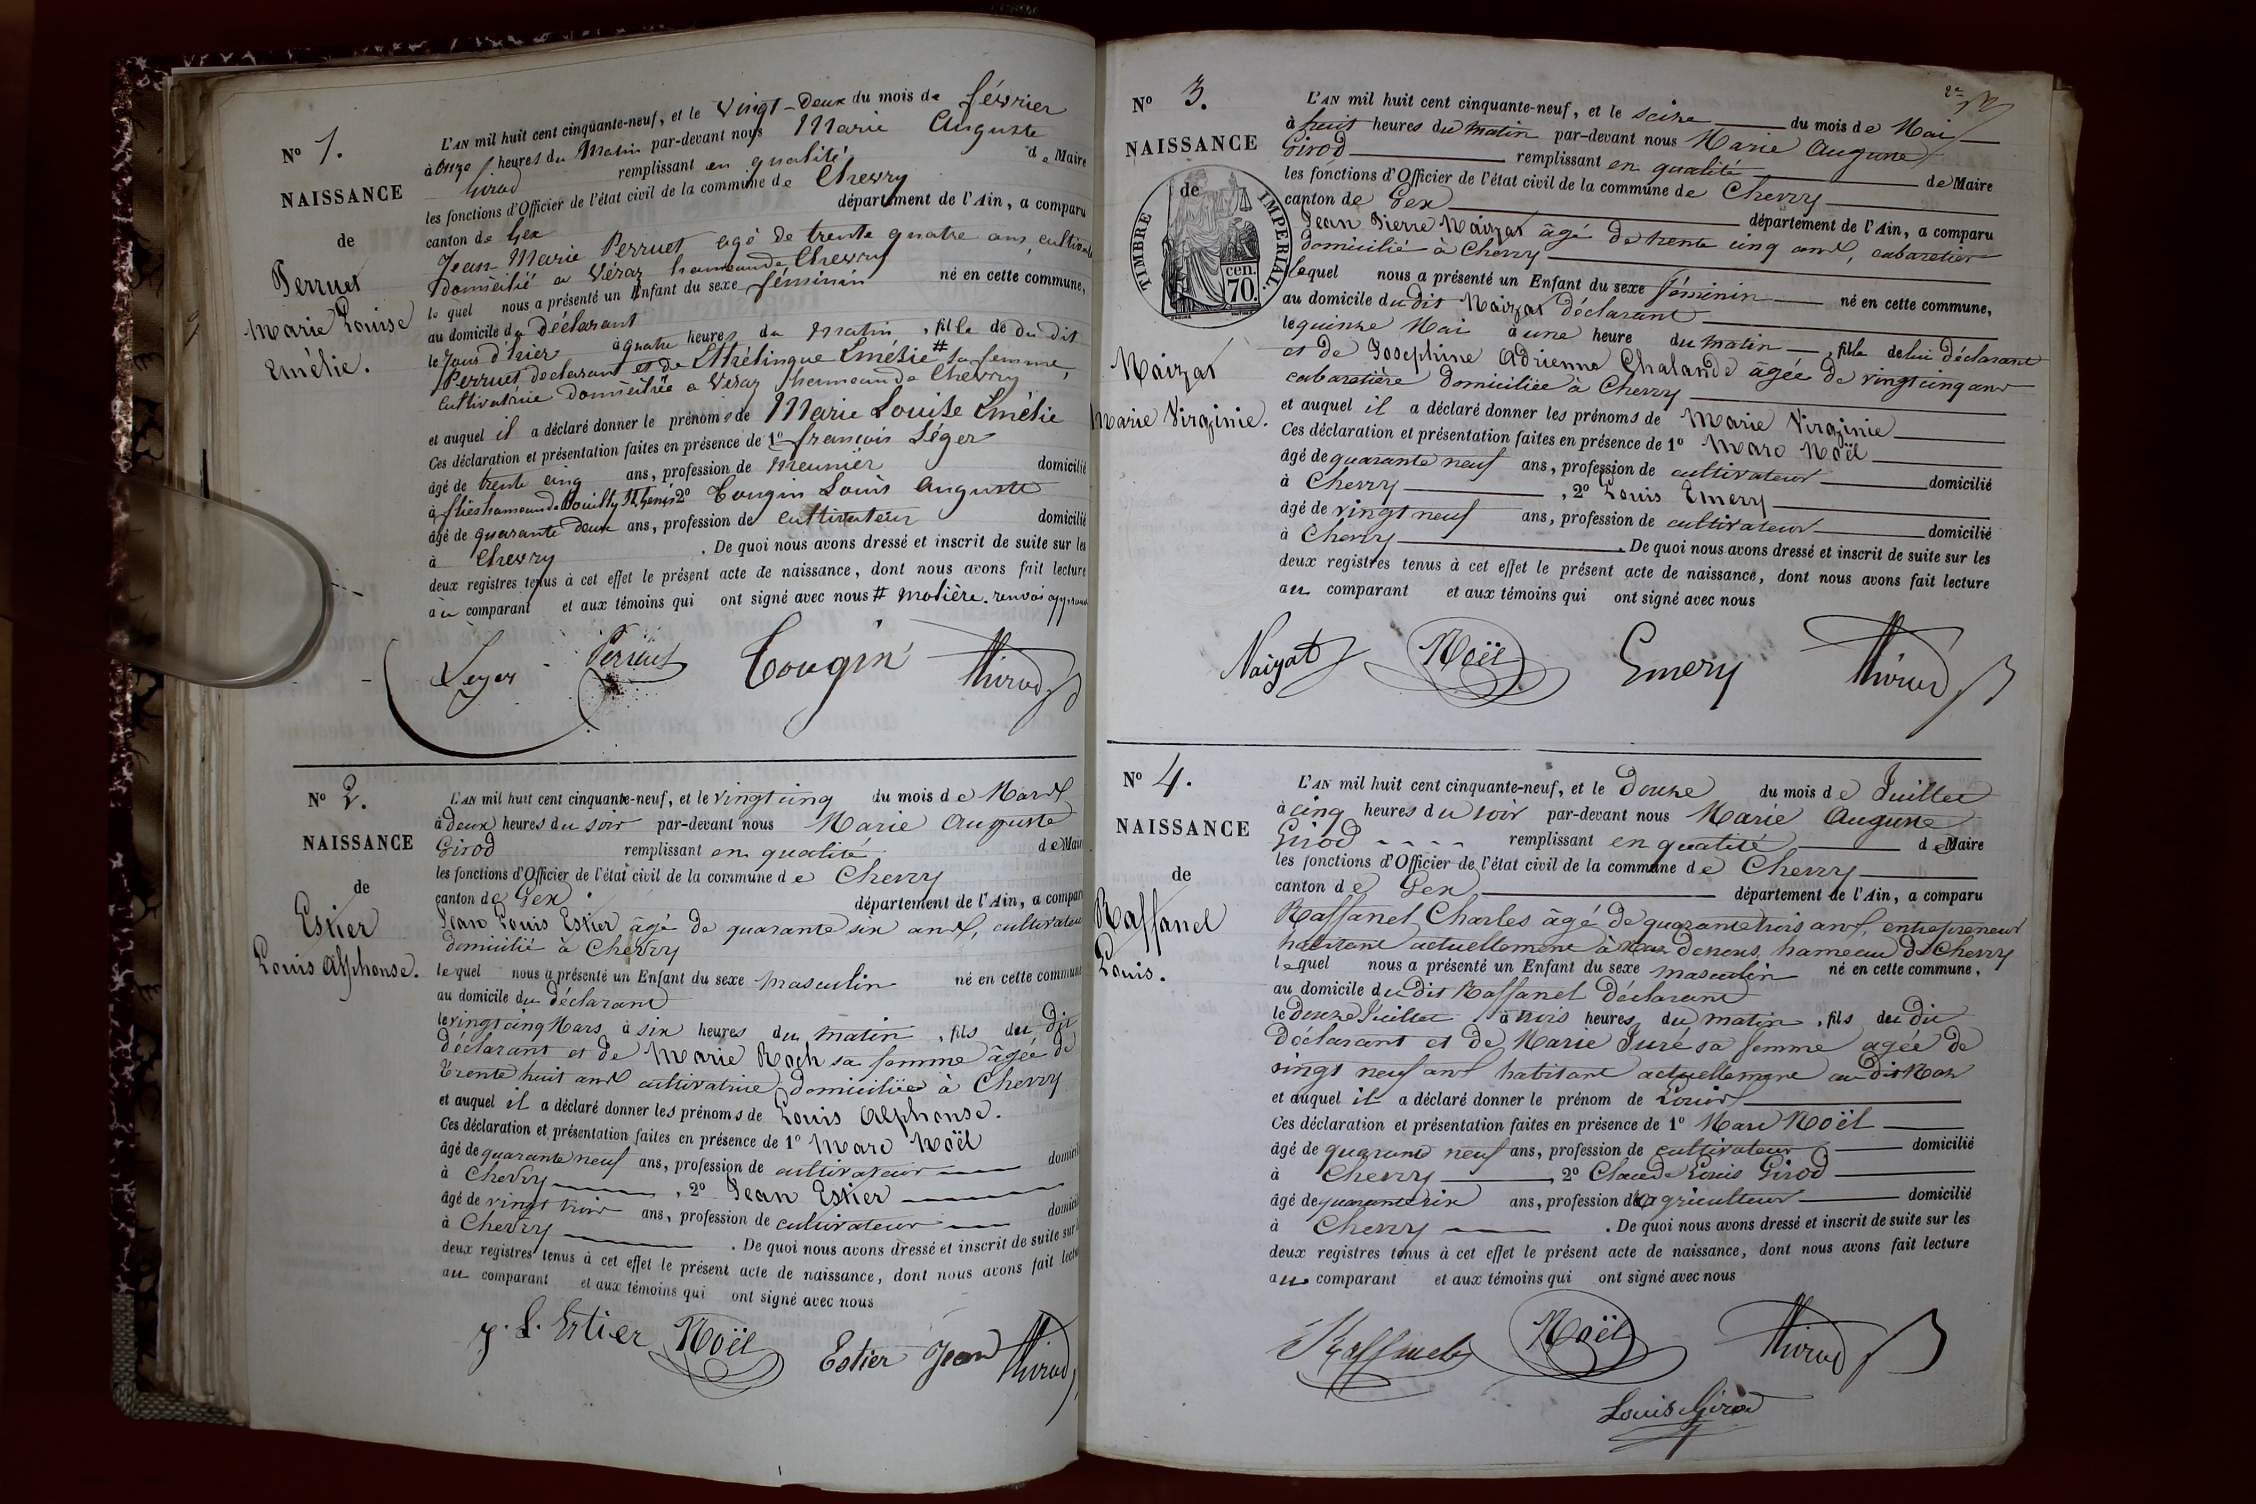 N° 1.
NAISSANCE
de
Perruet
Marie Louise
Emélie.
L'AN mil huit cent cinquante-neuf, et le Vingt-Deux du mois de février
à Onze heures du Matin par-devant nous Marie Auguste
Girod remplissant en qualité de Maire
les fonctions d'Officier de l'état civil de la commune de Chevry
canton de Gex département de l'Ain, a comparu
Jean-Marie Perruet agé de trente quatre ans, cultivat
domicilié a Véraz hameau de Chevry
le quel nous a présenté un Enfant du sexe féminin né en cette commune,
au domicile du déclarant
le Jour d'hier à quatre heures du matin, fille de du dit
Perruet declarant et de Emélie # sa femme,
cultivatrice domiciliée a Véraz hameau de Chevry
et auquel il a déclaré donner le prénoms de Marie Louise Emélie
Ces déclaration et présentation faites en présence de 1° françois Léger
âgé de trente cinq ans, profession de meunier domicilié
à flies hameau de Pouilly St Genis 2° Tougin Louis Auguste
âgé de quarante deux ans, profession de cultivateur domicilié
à Chevry . De quoi nous avons dressé et inscrit de suite sur les
deux registres tenus à cet effet le présent acte de naissance, dont nous avons fait lecture
au comparant et aux témoins qui ont signé avec nous # molière. renvoi approuvé
Leger Perruet Tougin Girod
N° 2.
NAISSANCE
de
Estier
Louis Alphonse.
L'AN mil huit cent cinquante-neuf, et le vingt cinq du mois de Mars
à deux heures du soir par-devant nous Marie Auguste
Girod remplissant en qualité de Mair
les fonctions d'Officier de l'état civil de la commune de Chevry
canton de Gex département de l'Ain, a compar
Jean Louis Estier âgé de quarante six ans, cultivateu
domicilié à Chevry
lequel nous a présenté un Enfant du sexe masculin né en cette commune
au domicile du déclarant
le vingt cinq Mars à six heures du matin, fils du dit
déclarant et de Marie Roch sa femme âgée de
trente huit ans cultivatrice domiciliée à Chevry
et auquel il a déclaré donner les prénoms de Louis Alphonse.
Ces déclaration et présentation faites en présence de 1° Marc Noël
âgé de quarante neuf ans, profession de cultivateur domicili
à Chevry, 2° Jean Estier
âgé de vingt trois ans, profession de cultivateur domicil
à Chevry . De quoi nous avons dressé et inscrit de suite sur
deux registres tenus à cet effet le présent acte de naissance, dont nous avons fait lectu
au comparant et aux témoins qui ont signé avec nous
J. L. Estier Noël Estier Jean Girod
N° 3.
NAISSANCE
de
TIMBRE IMPERIAL.
cen.
70.
Naizat
Marie Virginie.
L'AN mil huit cent cinquante-neuf, et le seize du mois de Mai
à huit heures du matin par-devant nous Marie Auguste
Girod remplissant en qualité de Maire
les fonctions d'Officier de l'état civil de la commune de Chevry
canton de Gex département de l'Ain, a comparu
Jean Pierre Naizat âgé de trente cinq ans, cabaretier
domicilié à Chevry
lequel nous a présenté un Enfant du sexe féminin né en cette commune,
au domicile du dit Naizat déclarant
le quinze Mai à une heure du matin, fille de lui déclarant
et de Joséphine Adrienne Chalande âgée de vingt cinq ans
cabaretière domiciliée à Chevry
et auquel il a déclaré donner les prénoms de Marie Virginie
Ces déclaration et présentation faites en présence de 1° Marc Noël
âgé de quarante neuf ans, profession de cultivateur domicilié
à Chevry, 2° Louis Emery
âgé de vingt neuf ans, profession de cultivateur domicilié
à Chevry . De quoi nous avons dressé et inscrit de suite sur les
deux registres tenus à cet effet le présent acte de naissance, dont nous avons fait lecture
au comparant et aux témoins qui ont signé avec nous
Naizat Noël Emery Girod
N° 4.
NAISSANCE
de
Raffanel
Louis.
L'AN mil huit cent cinquante-neuf, et le douze du mois de Juillet
à cinq heures du soir par-devant nous Marie Auguste
Girod remplissant en qualité de Maire
les fonctions d'Officier de l'état civil de la commune de Chevry
canton de Gex département de l'Ain, a comparu
Raffanel Charles âgé de quarante trois ans, entrepreneur
habitant actuellement à Naz dessous, hameau de Chevry
lequel nous a présenté un Enfant du sexe masculin né en cette commune,
au domicile du dit Raffanel déclarant
le douze Juillet à trois heures du matin, fils du dit
déclarant et de Marie Juré sa femme agée de
vingt neuf ans habitant actuellement au dit Naz
et auquel il a déclaré donner le prénom de Louis
Ces déclaration et présentation faites en présence de 1° Marc Noël
âgé de quarante neuf ans, profession de cultivateur domicilié
à Chevry, 2° Claude Louis Girod
âgé de quarante six ans, profession d'agriculteur domicilié
à Chevry . De quoi nous avons dressé et inscrit de suite sur les
deux registres tenus à cet effet le présent acte de naissance, dont nous avons fait lecture
au comparant et aux témoins qui ont signé avec nous
Raffanel Noël Girod
Louis Girod